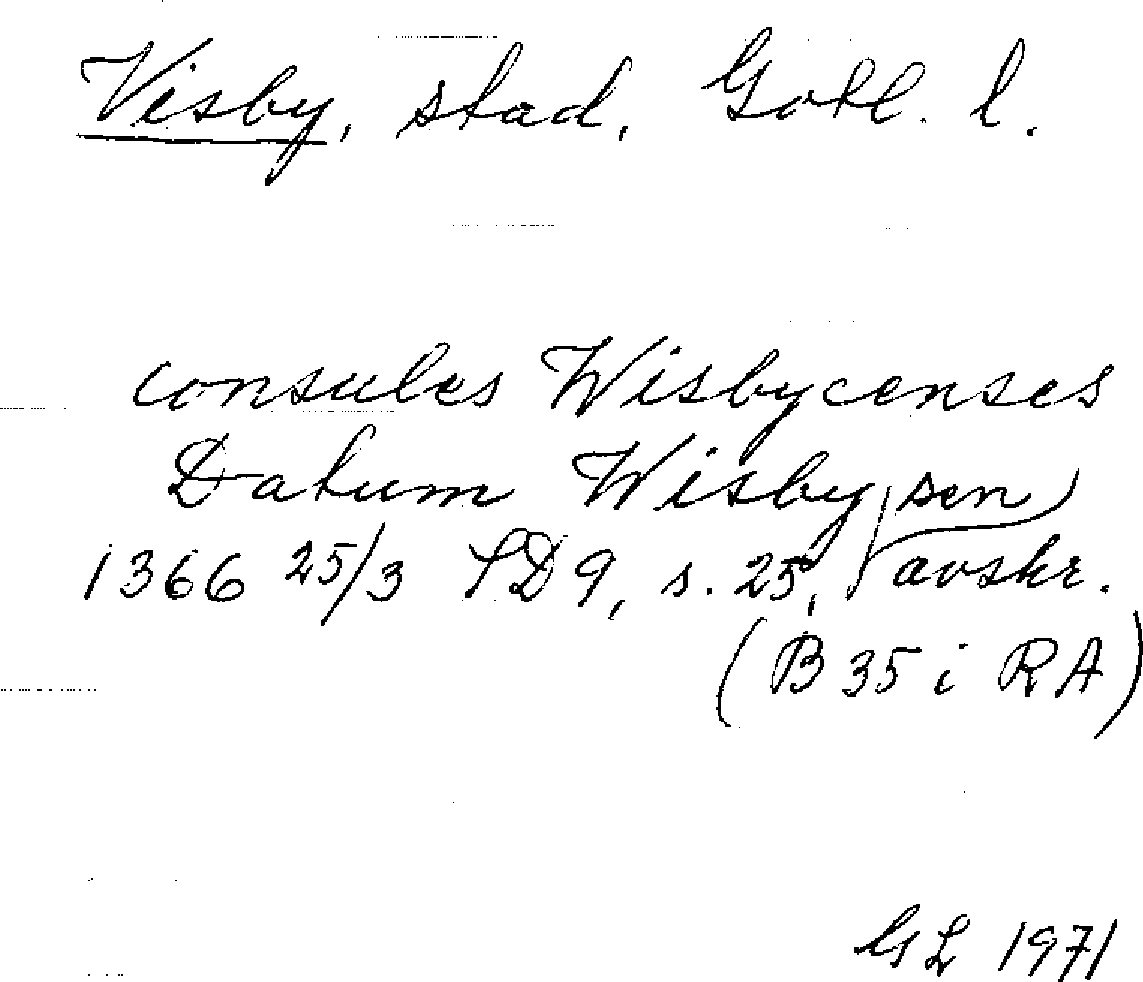 Visby, stad, Gotl. l.
consules Wisbycenses
Datum Wisby
1366 25/3 SD 9, s. 25, sen avskr.
(B 35 i RA)
GL 1971